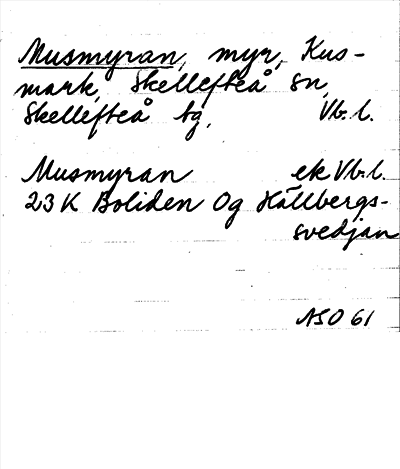 Musmyran, myr, Kus-
mark, Skellefteå sn,
Skellefteå tg, Vb. l.
Musmyran ek Vb. l.
23 K Boliden Og Hällbergs-
svedjan
NSO 61